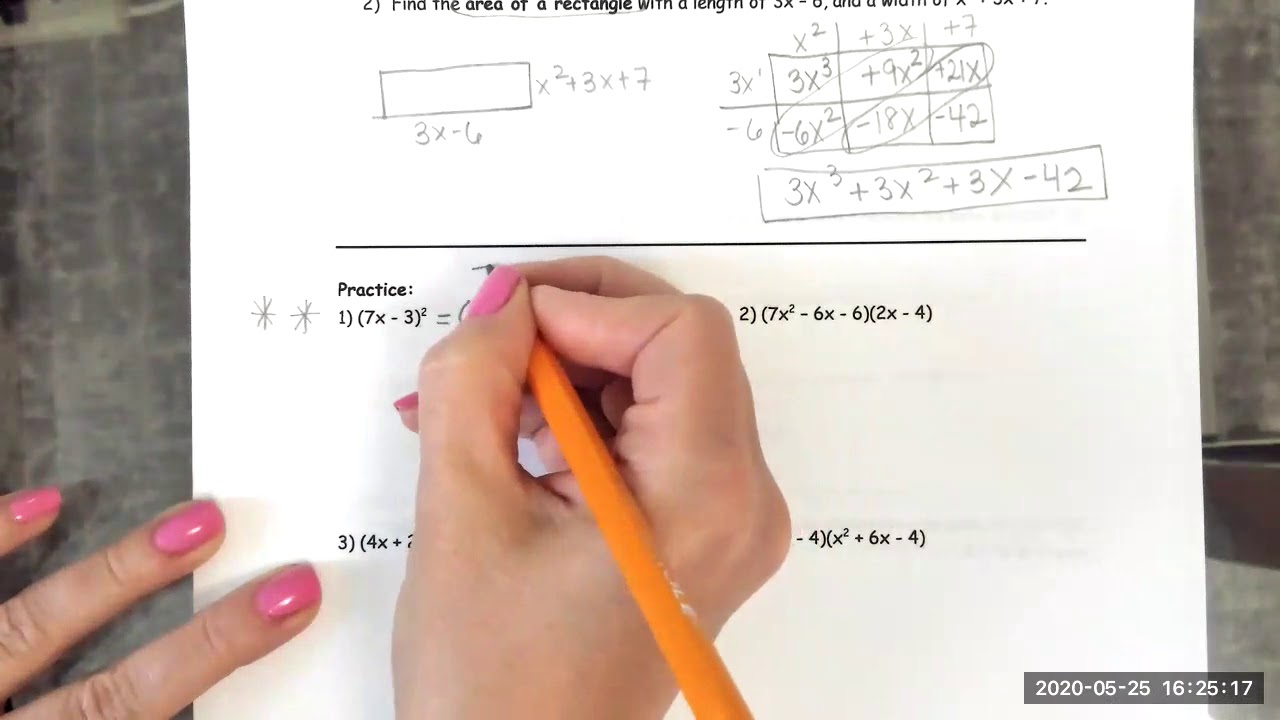 2) Find the area of a rectangle with a length of 3x - 6, and a width of x² + 3x + 7.
x² +3x +7
3x 3x³ +9x² +21x
-6 -6x² -18x -42
x²+3x+7
3x-6
3x³+3x²+3x-42
Practice:
1) (7x - 3)² = (
2) (7x² - 6x - 6)(2x - 4)
3) (4x +
- 4)(x² + 6x - 4)
2020-05-25 16:25:17